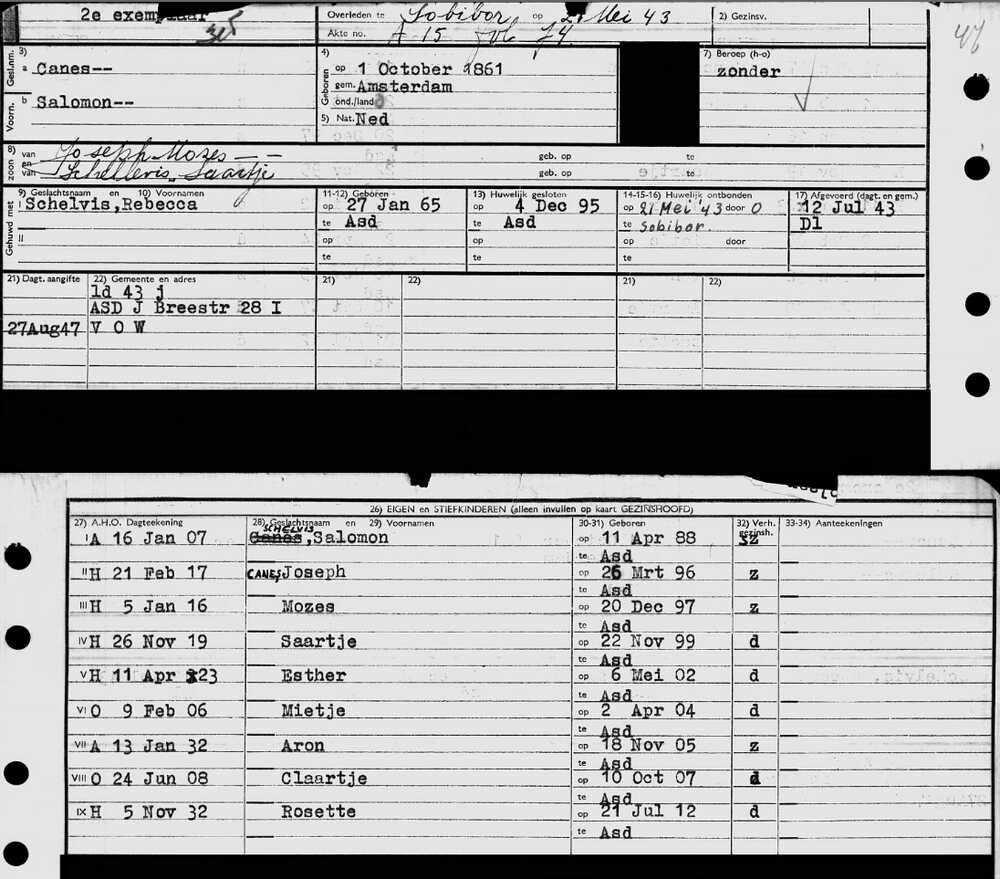 2e exemplaar
Overleden te Sobibor op 21 Mei 43
Akte no. A 15 fol 74
2) Gezinsv.
47
Gesl.nm.
3)
a Canes--
4)
Geboren
op 1 October 1861
gem. Amsterdam
ond./land
5) Nat. Ned
7) Beroep (h-o)
zonder
Voorn.
b Salomon--
8) van Joseph Mozes -- geb. op te
zoon en
van Schellevis, Saartje geb. op te
Gehuwd met
9) Geslachtsnaam en 10) Voornamen
I Schelvis,Rebecca
II
11-12) Geboren
op 27 Jan 65
te Asd
op
te
13) Huwelijk gesloten
op 4 Dec 95
te Asd
op
te
14-15-16) Huwelijk ontbonden
op 21 Mei '43 door O
te Sobibor.
op door
te
17) Afgevoerd (dagt. en gem.)
12 Jul 43
Dl
21) Dagt. aangifte 22) Gemeente en adres 21) 22) 21) 22)
ld 43 j
ASD J Breestr 28 I
27Aug47 V O W
26) EIGEN en STIEFKINDEREN (alleen invullen op kaart GEZINSHOOFD)
27) A.H.O. Dagteekening 28) Geslachtsnaam en 29) Voornamen 30-31) Geboren 32) Verh. gezinsh. 33-34) Aanteekeningen
SCHELVIS
I A 16 Jan 07 Canes,Salomon op 11 Apr 88 sz
te Asd
II H 21 Feb 17 CANES Joseph op 26 Mrt 96 z
te Asd
III H 5 Jan 16 Mozes op 20 Dec 97 z
te Asd
IV H 26 Nov 19 Saartje op 22 Nov 99 d
te Asd
V H 11 Apr 23 Esther op 6 Mei 02 d
te Asd
VI O 9 Feb 06 Mietje op 2 Apr 04 d
te Asd
VII A 13 Jan 32 Aron op 18 Nov 05 z
te Asd
VIII O 24 Jun 08 Claartje op 10 Oct 07 d
te Asd
IX H 5 Nov 32 Rosette op 21 Jul 12 d
te Asd